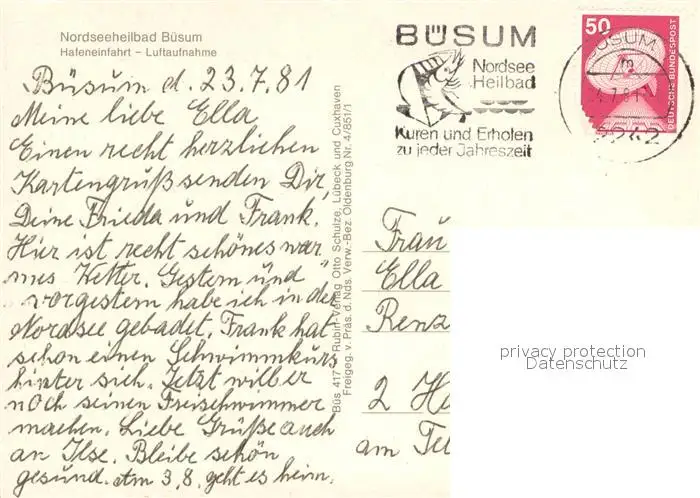 Nordseeheilbad Büsum
Hafeneinfahrt – Luftaufnahme
Büsum d. 23.7.81
Meine liebe Ella
Einen recht herzlichen
Kartengruß senden Dir,
Deine Frieda und Frank.
Hier ist recht schönes war
mes Wetter. Gestern und
vorgestern habe ich in der
Nordsee gebadet. Frank hat
schon einen Schwimmkurs
hinter sich. Jetzt will er
noch seinen Freischwimmer
machen. Liebe Grüße auch
an Ilse. Bleibe schön
gesund. Am 3.8. geht es heim.
Büs 417 Rubin-Verlag Otto Schulze, Lübeck und Cuxhaven
Freigeg. v. Präs. d. Nds. Verw.-Bez. Oldenburg Nr. 4/851/1
BÜSUM
Nordsee
Heilbad
Kuren und Erholen
zu jeder Jahreszeit
50
DEUTSCHE BUNDESPOST
BÜSUM
2242
Frau
Ella
Renz
2 H
am Te
privacy protection
Datenschutz